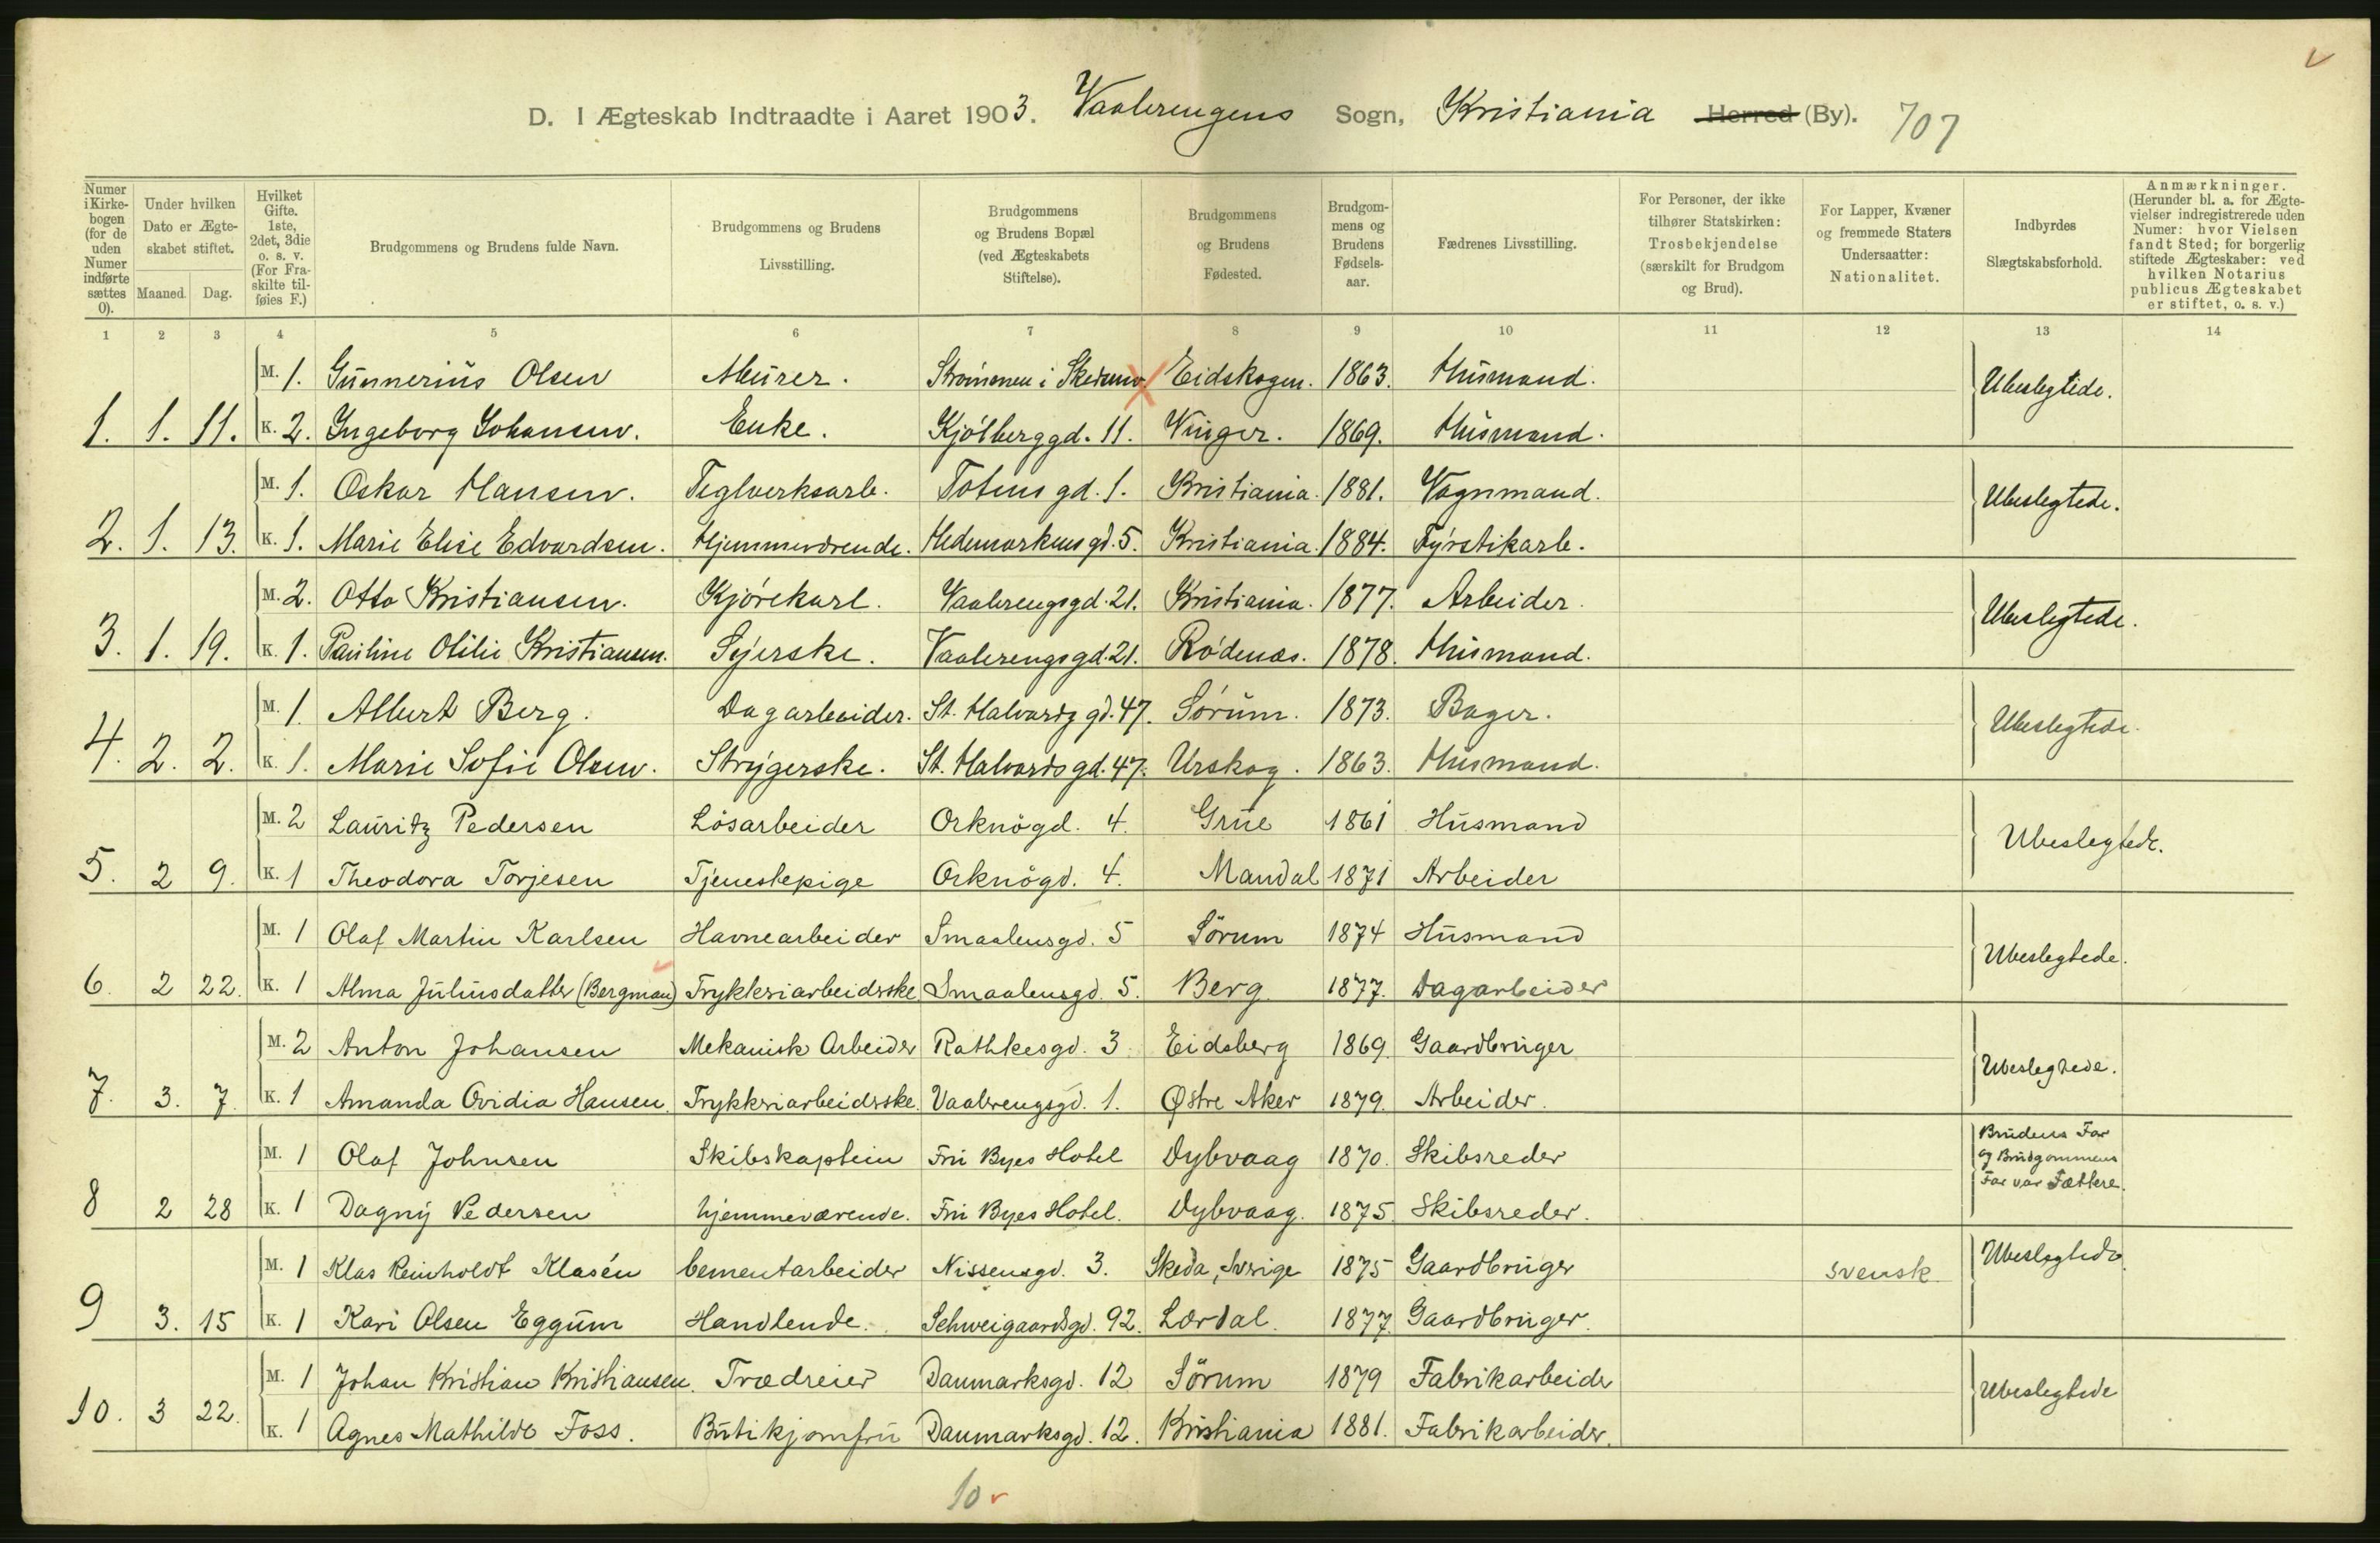 D. I Ægteskab Indtraadte i Aaret 1903. Vaalerengens Sogn, Kristiania Herred (By). 707
Numer i Kirkebogen (for de uden Numer indførte sættes 0).
Under hvilken Dato er Ægteskabet stiftet.
Maaned. Dag.
Hvilket Gifte. 1ste, 2det, 3die o. s. v. (For Fraskilte tilføies F.)
Brudgommens og Brudens fulde Navn.
Brudgommens og Brudens Livsstilling.
Brudgommens og Brudens Bopæl (ved Ægteskabets Stiftelse).
Brudgommens og Brudens Fødested.
Brudgommens og Brudens Fødselsaar.
Fædrenes Livsstilling.
For Personer, der ikke tilhører Statskirken: Trosbekjendelse (særskilt for Brudgom og Brud).
For Lapper, Kvæner og fremmede Staters Undersaatter: Nationalitet.
Indbyrdes Slægtskabsforhold.
Anmærkninger. (Herunder bl. a. for Ægtevielser indregistrerede uden Numer: hvor Vielsen fandt Sted; for borgerlig stiftede Ægteskaber: ved hvilken Notarius publicus Ægteskabet er stiftet, o. s. v.)
1 2 3 4 5 6 7 8 9 10 11 12 13 14
M. 1. Gunnerius Olsen Murer. Strömmen i Skedsmo. Eidskogen. 1863. Husmand. Ubeslegtede.
1. 1. 11. K. 2. Ingeborg Johansen. Enke. Kjölberggd. 11. Vinger. 1869. Husmand.
M. 1. Oskar Hansen. Teglverksarb. Totens gd. 1. Kristiania. 1881. Vognmand. Ubeslegtede.
2. 1. 13. K. 1. Marie Elise Edvardsen. Hjemmeværende. Hedemarkens gd. 5. Kristiania. 1884. Fyrstikarb.
M. 2. Otto Kristiansen. Kjörekarl. Vaalerengsgd. 21. Kristiania. 1877. Arbeider. Ubeslegtede.
3. 1. 19. K. 1. Pauline Otilie Kristiansen. Syerske. Vaalerengsgd. 21. Rödenæs. 1878. Husmand.
M. 1 Albert Berg. Dagarbeider. St. Halvards gd. 47. Sörum. 1873. Bager. Ubeslegtede.
4. 2. 2. K. 1. Marie Sofie Olsen. Strygerske. St. Halvards gd. 47. Urskog. 1863. Husmand.
M. 2 Lauritz Pedersen Lösarbeider Orknögd. 4. Grue 1861 Husmand Ubeslegtede.
5. 2 9. K. 1 Theodora Torjesen Tjenestepige Orknögd. 4. Mandal 1871 Arbeider
M. 1 Olaf Martin Karlsen Havnearbeider Smaalensgd. 5 Sörum 1874 Husmand Ubeslegtede.
6. 2 22. K. 1 Alma Juliusdatter (Bergman) Trykkeriarbeidrske Smaalensgd. 5. Berg. 1877. Dagarbeider
M. 2 Anton Johansen Mekanisk Arbeider Rathkesgd. 3. Eidsberg 1869. Gaardbruger Ubeslegtede.
7. 3. 7. K. 1 Amanda Ovidia Hansen. Trykkeriarbeidrske. Vaalerengsgd. 1. Østre Aker 1879. Arbeider.
M. 1 Olaf Johnsen Skibskaptein Fru Byes Hotel Dybvaag 1870. Skibsreder Brudens Far
og Brudgommens
Far var Fættere.
8 2 28 K. 1 Dagny Pedersen hjemmeværende. Fru Byes Hotel. Dybvaag. 1875. Skibsreder.
M. 1 Klas Reinholdt Klasén Cementarbeider Nissensgd. 3. Skeda, Sverige 1875 Gaardbruger svensk. Ubeslegtede.
9 3. 15 K. 1 Kari Olsen Eggum Handlende. Schweigaardsgd. 92. Lærdal. 1877. Gaardbruger.
M. 1 Johan Kristian Kristiansen. Trædreier Danmarksgd. 12 Sörum 1879 Fabrikarbeider Ubeslegtede
10. 3 22. K. 1 Agnes Mathilde Foss. Butikjomfru Danmarksgd. 12. Kristiania 1881. Fabrikarbeider.
10